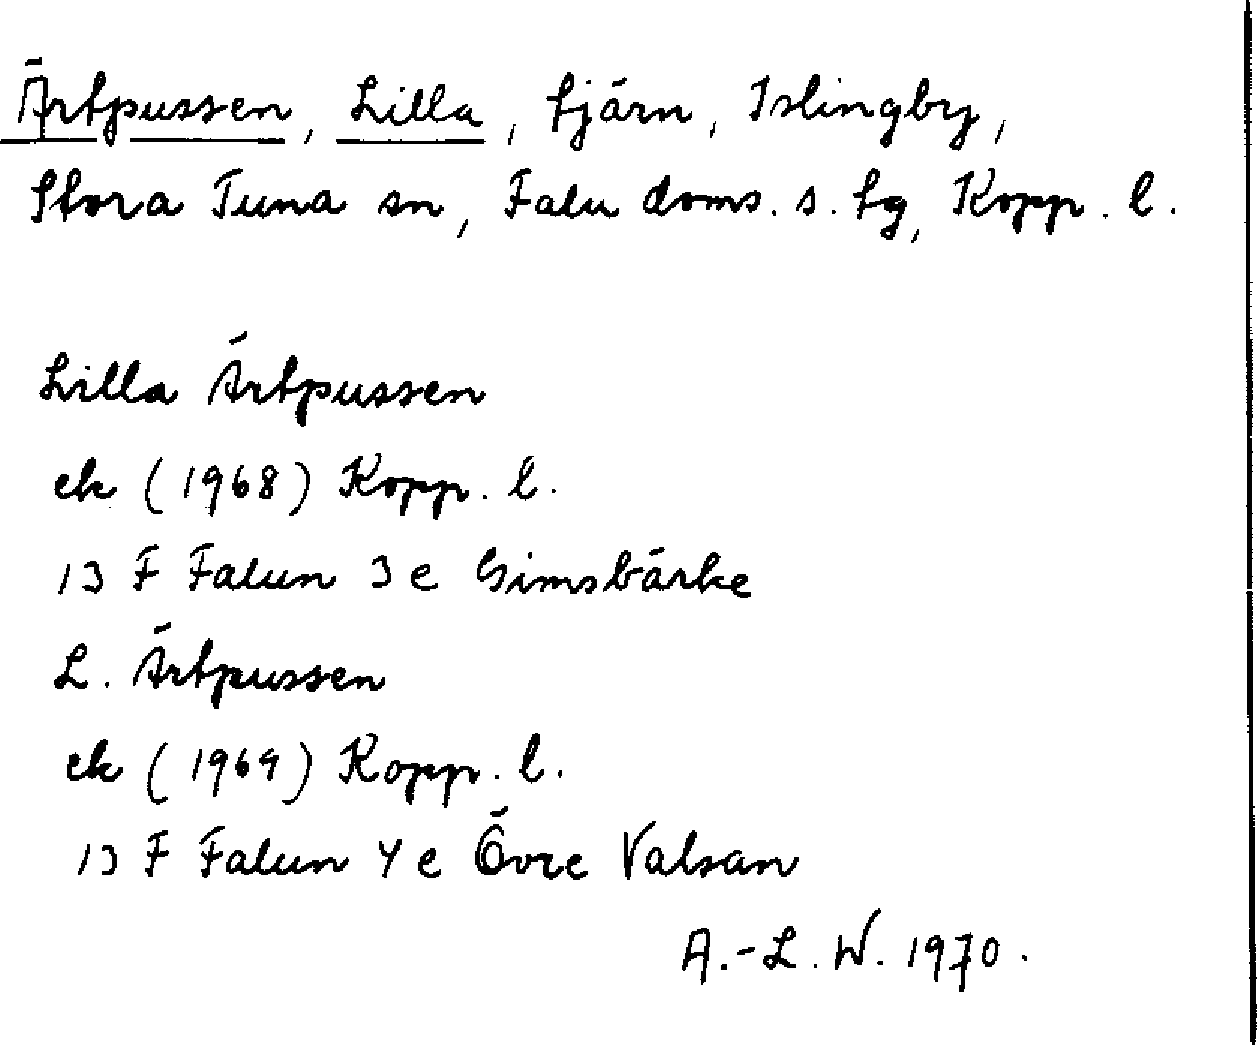 Ärtpussen, Lilla, tjärn, Islingby,
Stora Tuna sn, Falu doms. s. tg, Kopp. l.
Lilla Ärtpussen
ek (1968) Kopp. l.
13 F Falun 3 e Gimsbärke
L. Ärtpussen
ek (1969) Kopp. l.
13 F Falun 4 e Övre Valsan
A.-L. W. 1970.